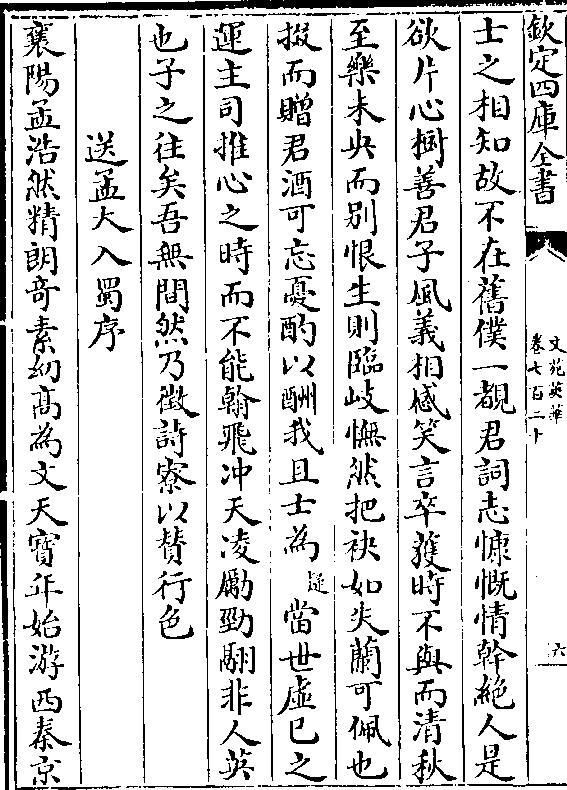 欽定四庫全書
文苑英華
卷七百二十
六
士之相知故不在舊僕一覩君詞志慷慨情幹絶人是
欲片心樹善君子風義相感笑言卒獲時不與而清秋
至樂未央而别恨生則臨岐憮然把袂如失蘭可佩也
掇而贈君酒可忘憂酌以酬我且士為疑當世虚已之
運主司推心之時而不能翰飛冲天凌勵勁翮非人英
也子之往矣吾無間然乃徴詩寮以賛行色
送孟大入蜀序
襄陽孟浩然精朗竒素幼髙為文天寳年始游西秦京